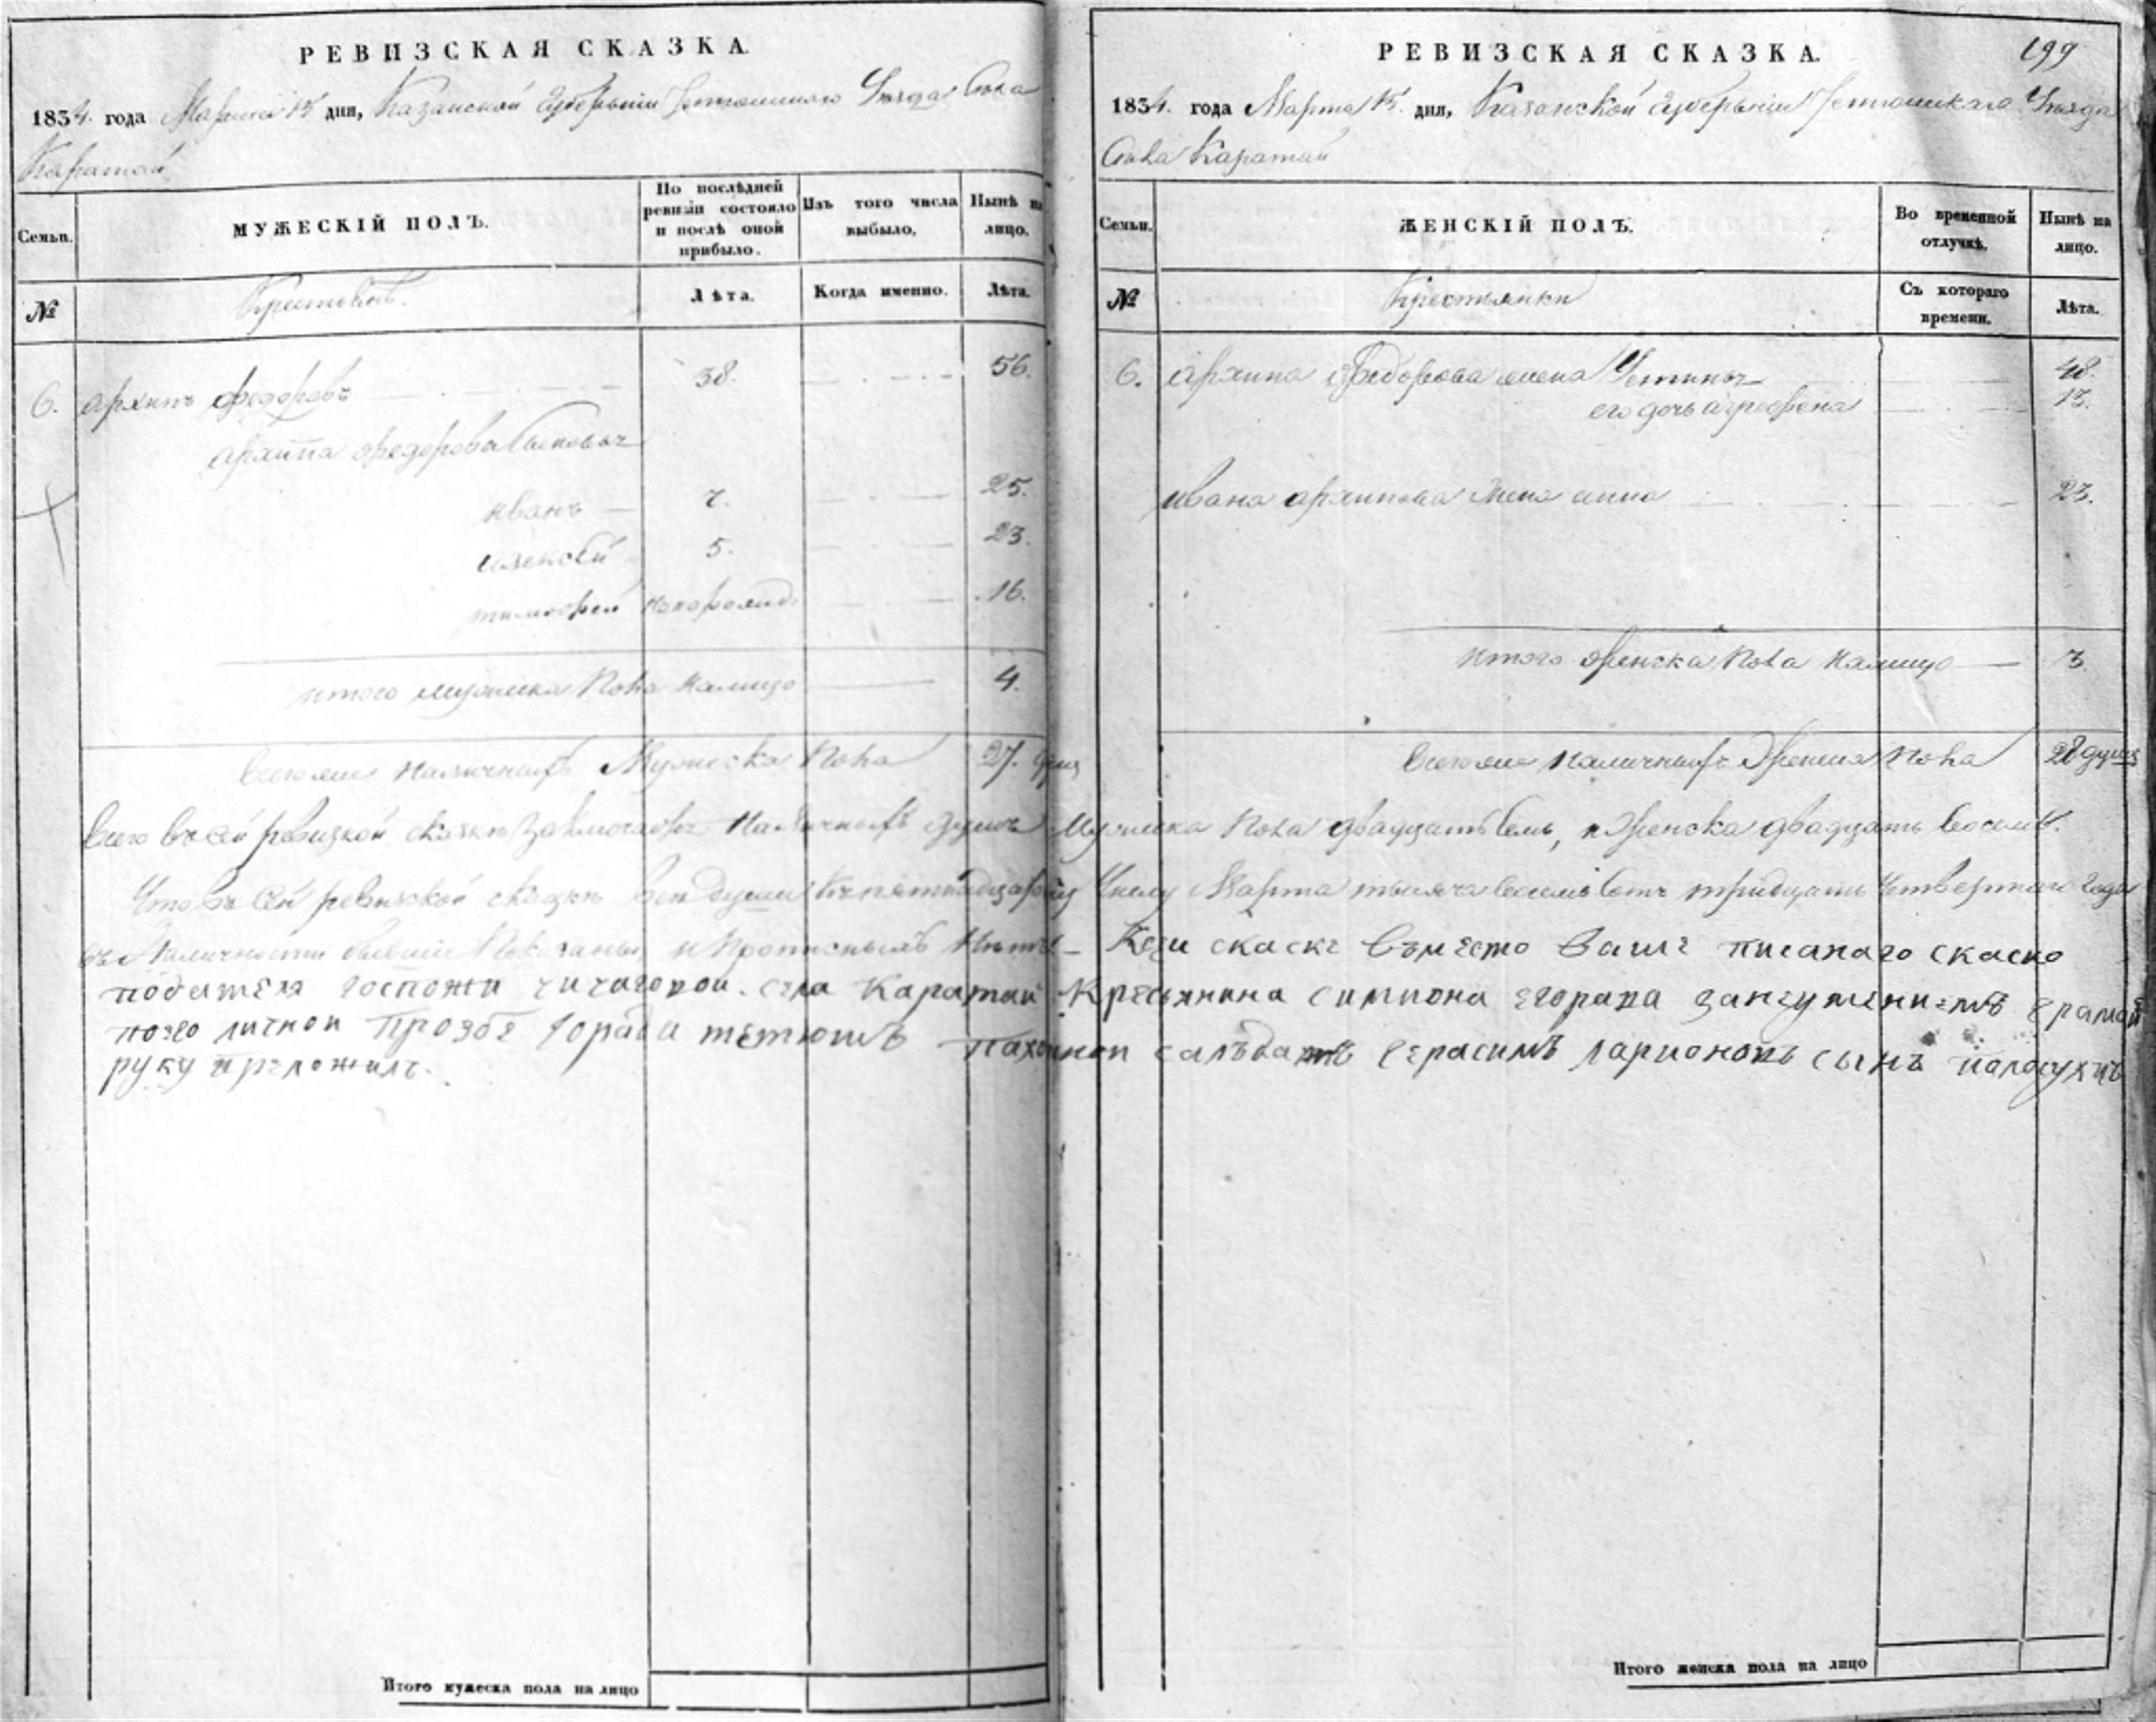 РЕВИЗСКАЯ СКАЗКА.
1834. года Марта 15 дня, Казанской Губернии Тетюшскаго Уезда Села
Каратай
Семьи.
МУЖЕСКІЙ ПОЛЪ.
По послѣдней ревизіи состояло и послѣ оной прибыло.
Изъ того числа выбыло.
Нынѣ на лицо.
№
Лѣта.
Когда именно.
Лѣта.
6. архипъ федоровъ 38. 56.
архипа федорова сыновья
иванъ 7. 25.
алексей 5. 23.
тимофей новорожд: 16.
итого мужеска пола налицо 4.
Всего же наличныхъ Мужеска пола 27. душ
Итого мужеска пола на лицо
РЕВИЗСКАЯ СКАЗКА.
199
1834. года Марта 15. дня, Казанской Губернии Тетюшскаго Уезда
Села Каратай
Семьи.
ЖЕНСКІЙ ПОЛЪ.
Во временной отлучкѣ.
Нынѣ на лицо.
№
Крестьянки
Съ котораго времени.
Лѣта.
6. архипа Федорова жена 48.
его дочь аграфена 13.
ивана архипова жена анна 23.
итого женска пола налицо 3.
Всего же наличныхъ женска пола 28 душъ
Всего въ сей ревизкой сказке заключаетъ наличныхъ душъ Мужеска пола двадцать семь, и женска двадцать восемь.
Что въ сей ревизской сказке все души к пятнадцатому числу Марта тысяча восемь сотъ тридцать четвертаго года
въ наличности бывшие показаны и прописныхъ нетъ. Ксеи скаске въместо выше писанаго скаско
подателя госпожи чичаговои. села Каратаи Кресьянина симиона егорава занеумениемъ грамоти
поэго личнои прозбе горада тетюшъ салъдатъ герасимъ ларионовъ сынъ
руку преложилъ.
Итого женска пола на лицо